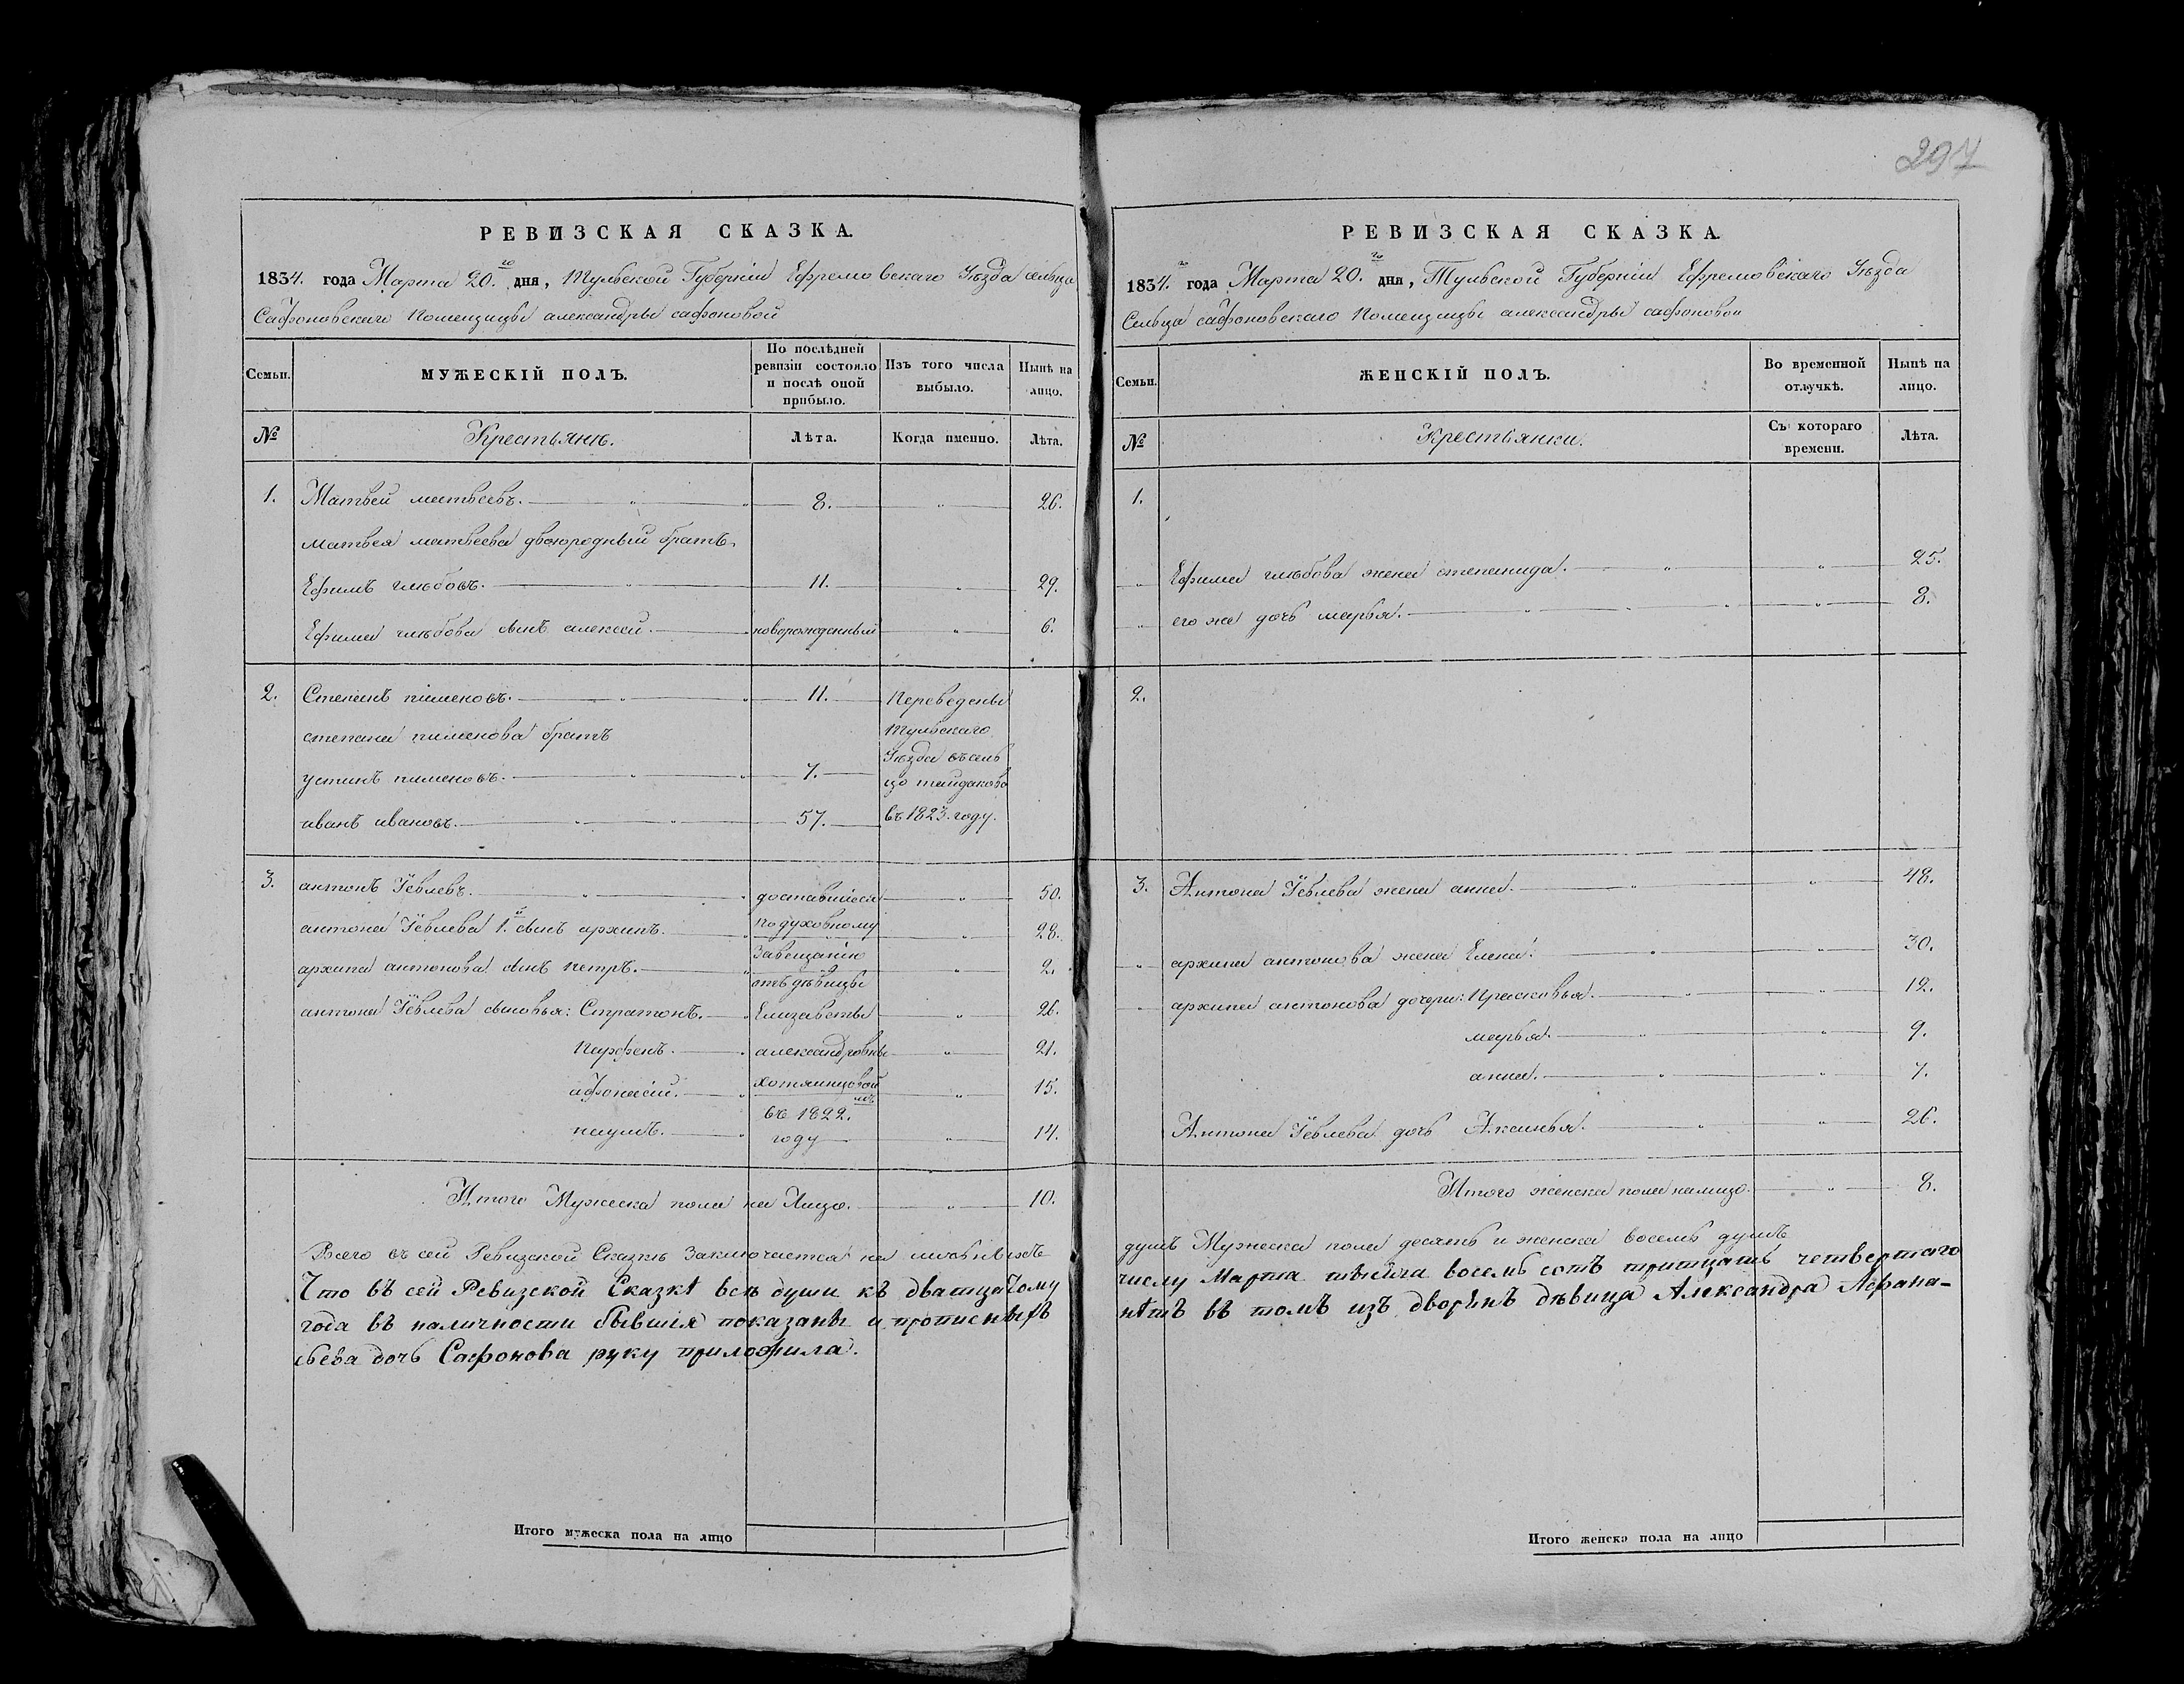 297
РЕВИЗСКАЯ СКАЗКА.
1834. года Марта 20.го дня, Тульской Губерніи Ефремовскаго Уѣзда сельца
Сафоновскаго Помещицы александры сафоновой
Семьи. МУЖЕСКІЙ ПОЛЪ. По послѣдней ревизіи состояло и послѣ оной прибыло. Изъ того числа выбыло. Нынѣ на лицо.
№ Крестьянъ. Лѣта. Когда именно. Лѣта.
1. Матвей матвеевъ. 8. 26.
матвея матвеева двоюродный братъ
Ефимъ глебовъ. 11. 29.
Ефима глебова сынъ алексей. новорожденный 6.
2. Степанъ пименовъ. 11. Переведены
степана пименова братъ тульскаго
устинъ пименовъ. 7. Уѣзда въ сель
цо тайдаково
иванъ ивановъ. 57. въ 1823. году.
3. антонъ Іевлевъ. доставшіеся 50.
антона Іевлева 1.й сынъ архипъ. по духовному 28.
завещанію
архипа антонова сынъ петръ. 2.
отъ девицы
антона Іевлева сыновья: Стратонъ. Елизаветы 26.
Парфенъ. александровны 21.
афонасій. хотяинцовой 15.
въ 1822.мъ
наумъ. году 14.
Итого Мужеска пола на Лицо. 10.
Всего въ сей Ревизской Сказке Заключается на
Что въ сей Ревизской Сказкѣ всѣ души къ дватцатому
года въ наличности бывшія показаны и прописныхъ
сьева дочь Сафонова руку приложила.
Итого мужеска пола на лицо
РЕВИЗСКАЯ СКАЗКА.
1834.го года Марта 20.го дня, Тульской Губерніи Ефремовскаго Уѣзда
Сельца сафоновскаго Помещицы александры сафоновой
Семьи. ЖЕНСКІЙ ПОЛЪ. Во временной отлучкѣ. Нынѣ на лицо.
№ Крестьянки. Съ котораго времени. Лѣта.
1.
Ефима глебова жена степанида. 25.
его же дочь марья. 8.
2.
3. Антона Іевлева жена анна. 48.
архипа антонова жена Елена. 30.
архипа антонова дочери: Прасковья. 12.
марья. 9.
анна. 7.
Антона Іевлева дочь Аксинья. 26.
Итого женска пола налицо. 8.
душъ Мужеска пола десять и женска восемь душъ
числу Марта тысяча восемь сотъ тритцать четвертаго
нѣтъ въ томъ изъ дворянъ дѣвица Александра Афана-
Итого женска пола на лицо